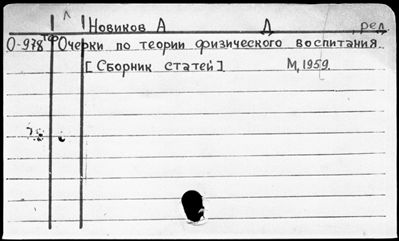 Л
Новиков А Д ред
О-978 ТФ Очерки по теории физического воспитания.
[Сборник статей] М, 1959